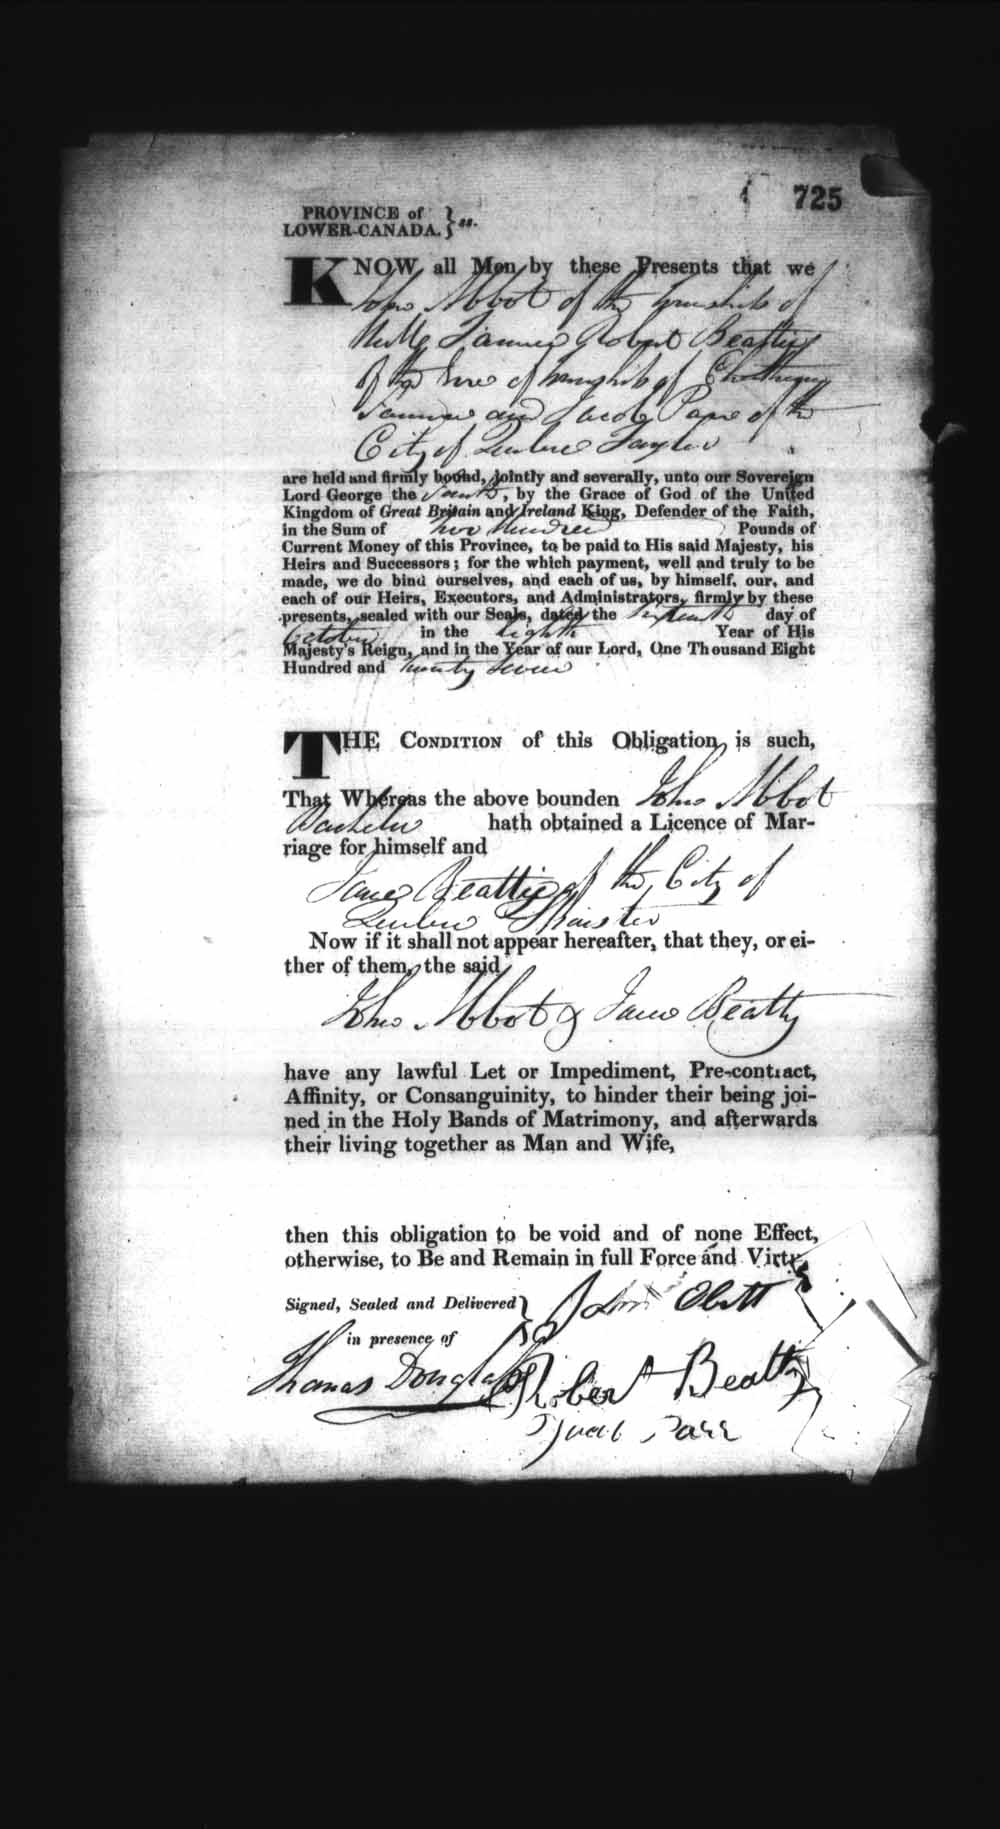 725
PROVINCE of
LOWER-CANADA. } ss.
KNOW all Men by these Presents that we
John Abbot of the Township of
Robert Beattie
of the of township of
and Jacob of the
City of Quebec
are held and firmly bound, jointly and severally, unto our Sovereign
Lord George the Fourth, by the Grace of God of the United
Kingdom of Great Britain and Ireland King, Defender of the Faith,
in the Sum of two Hundred Pounds of
Current Money of this Province, to be paid to His said Majesty, his
Heirs and Successors; for the which payment, well and truly to be
made, we do bind ourselves, and each of us, by himself, our, and
each of our Heirs, Executors, and Administrators, firmly by these
presents, sealed with our Seals, dated the sixteenth day of
October in the Eighth Year of His
Majesty's Reign, and in the Year of our Lord, One Thousand Eight
Hundred and twenty seven
THE CONDITION of this Obligation is such,
That Whereas the above bounden John Abbot
Bachelor hath obtained a Licence of Mar-
riage for himself and
Jane Beattie of the City of
Quebec Spinster
Now if it shall not appear hereafter, that they, or ei-
ther of them, the said
John Abbot & Jane Beatty
have any lawful Let or Impediment, Pre-contract,
Affinity, or Consanguinity, to hinder their being joi-
ned in the Holy Bands of Matrimony, and afterwards
their living together as Man and Wife,
then this obligation to be void and of none Effect,
otherwise, to Be and Remain in full Force and Virtu
Signed, Sealed and Delivered } John Obitt
in presence of
Thomas Douglass Robert Beatty
Jacob